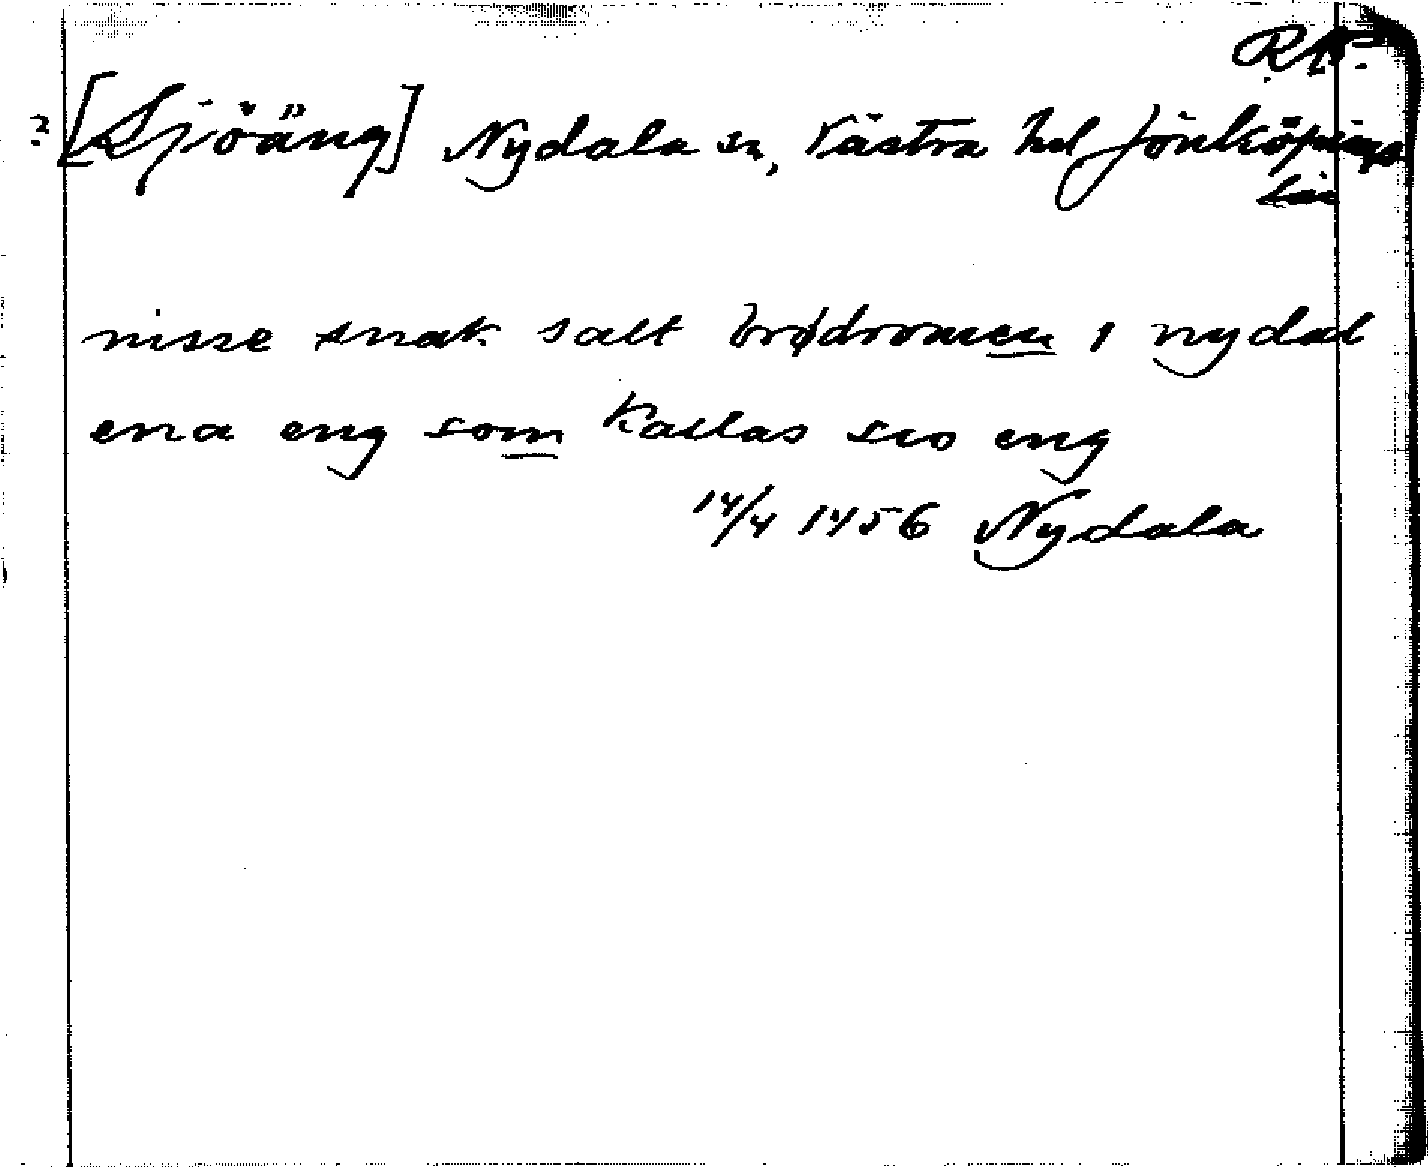 RA.
? [Sjöäng] Nydala sn, Västra hd Jönköpings
län
nisse snak salt brødromen i nydal
ena eng som kallas sio eng
14/4 1456 Nydala